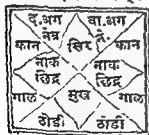 द. अंग वा. अंग
नेत्र ने.
कान सिर कान
नाक नाक
छिद्र छिद्र
गाल मुख गाल
ठोडी ठोडी